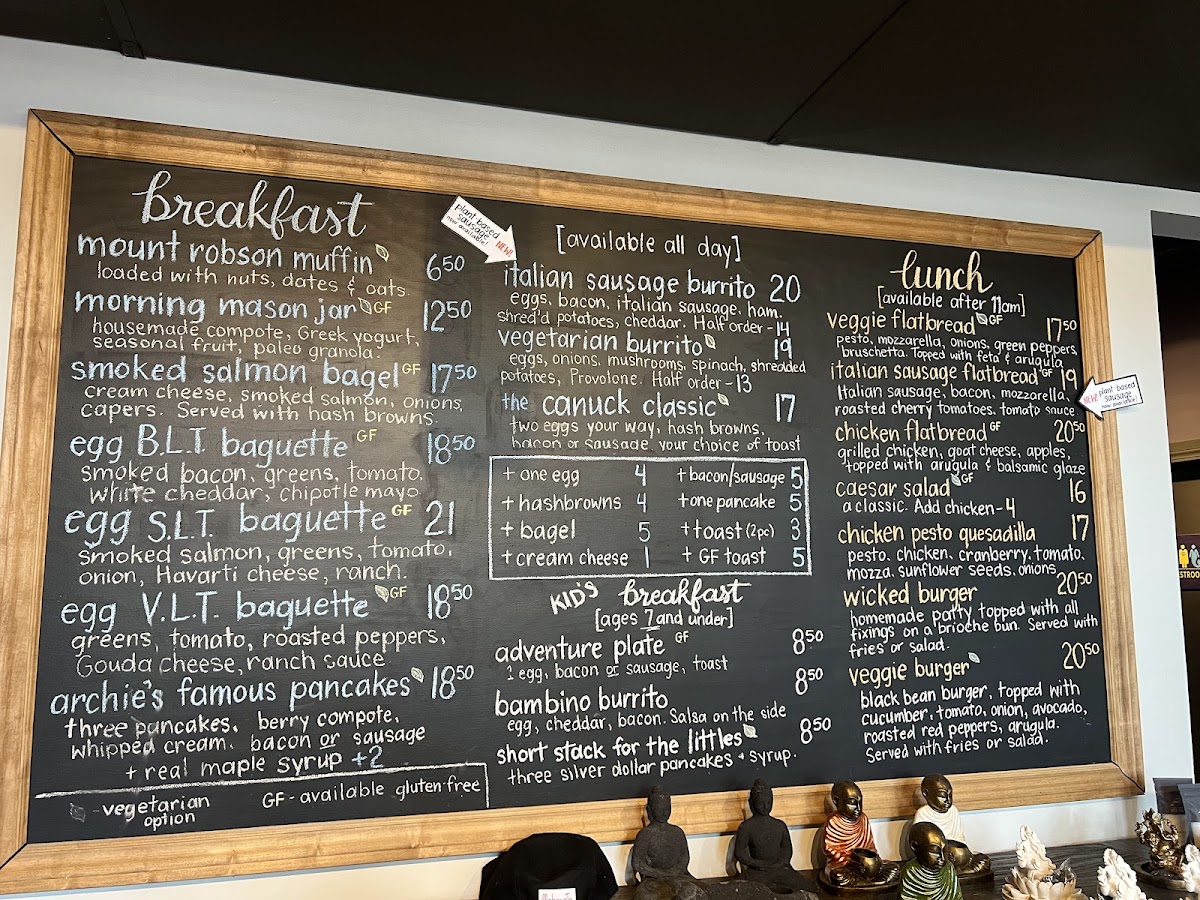 breakfast
mount robson muffin 6⁵⁰
loaded with nuts, dates & oats.
morning mason jar GF 12⁵⁰
housemade compote, Greek yogurt,
seasonal fruit, paleo granola.
smoked salmon bagel GF 17⁵⁰
cream cheese, smoked salmon, onions,
capers. Served with hash browns.
egg B.L.T. baguette GF 18⁵⁰
smoked bacon, greens, tomato,
white cheddar, chipotle mayo
egg S.L.T. baguette GF 21
smoked salmon, greens, tomato,
onion, Havarti cheese, ranch.
egg V.L.T. baguette GF 18⁵⁰
greens, tomato, roasted peppers,
Gouda cheese, ranch sauce
archie's famous pancakes 18⁵⁰
three pancakes, berry compote,
whipped cream. bacon or sausage
+ real maple syrup +2
- vegetarian option
GF - available gluten-free
plant based sausage now available! NEW!
[available all day]
italian sausage burrito 20
eggs, bacon, italian sausage, ham,
shred'd potatoes, cheddar. Half order - 14
vegetarian burrito 19
eggs, onions, mushrooms, spinach, shredded
potatoes, Provolone. Half order - 13
the canuck classic 17
two eggs your way, hash browns,
bacon or sausage, your choice of toast
+ one egg 4
+ hashbrowns 4
+ bagel 5
+ cream cheese 1
+ bacon/sausage 5
+ one pancake 5
+ toast (2pc) 3
+ GF toast 5
KID'S breakfast
[ages 7 and under]
adventure plate GF 8⁵⁰
1 egg, bacon or sausage, toast
bambino burrito 8⁵⁰
egg, cheddar, bacon. Salsa on the side
short stack for the littles 8⁵⁰
three silver dollar pancakes + syrup.
lunch
[available after 11am]
veggie flatbread GF 17⁵⁰
pesto, mozzarella, onions, green peppers,
bruschetta. Topped with feta & arugula
italian sausage flatbread GF 19
Italian sausage, bacon, mozzarella,
roasted cherry tomatoes, tomato sauce
NEW! plant based sausage now available!
chicken flatbread GF 20⁵⁰
grilled chicken, goat cheese, apples,
topped with arugula & balsamic glaze
caesar salad GF 16
a classic. Add chicken - 4
chicken pesto quesadilla 17
pesto, chicken, cranberry, tomato,
mozza, sunflower seeds, onions
wicked burger 20⁵⁰
homemade patty topped with all
fixings on a brioche bun. Served with
fries or salad.
veggie burger 20⁵⁰
black bean burger, topped with
cucumber, tomato, onion, avocado,
roasted red peppers, arugula.
Served with fries or salad.